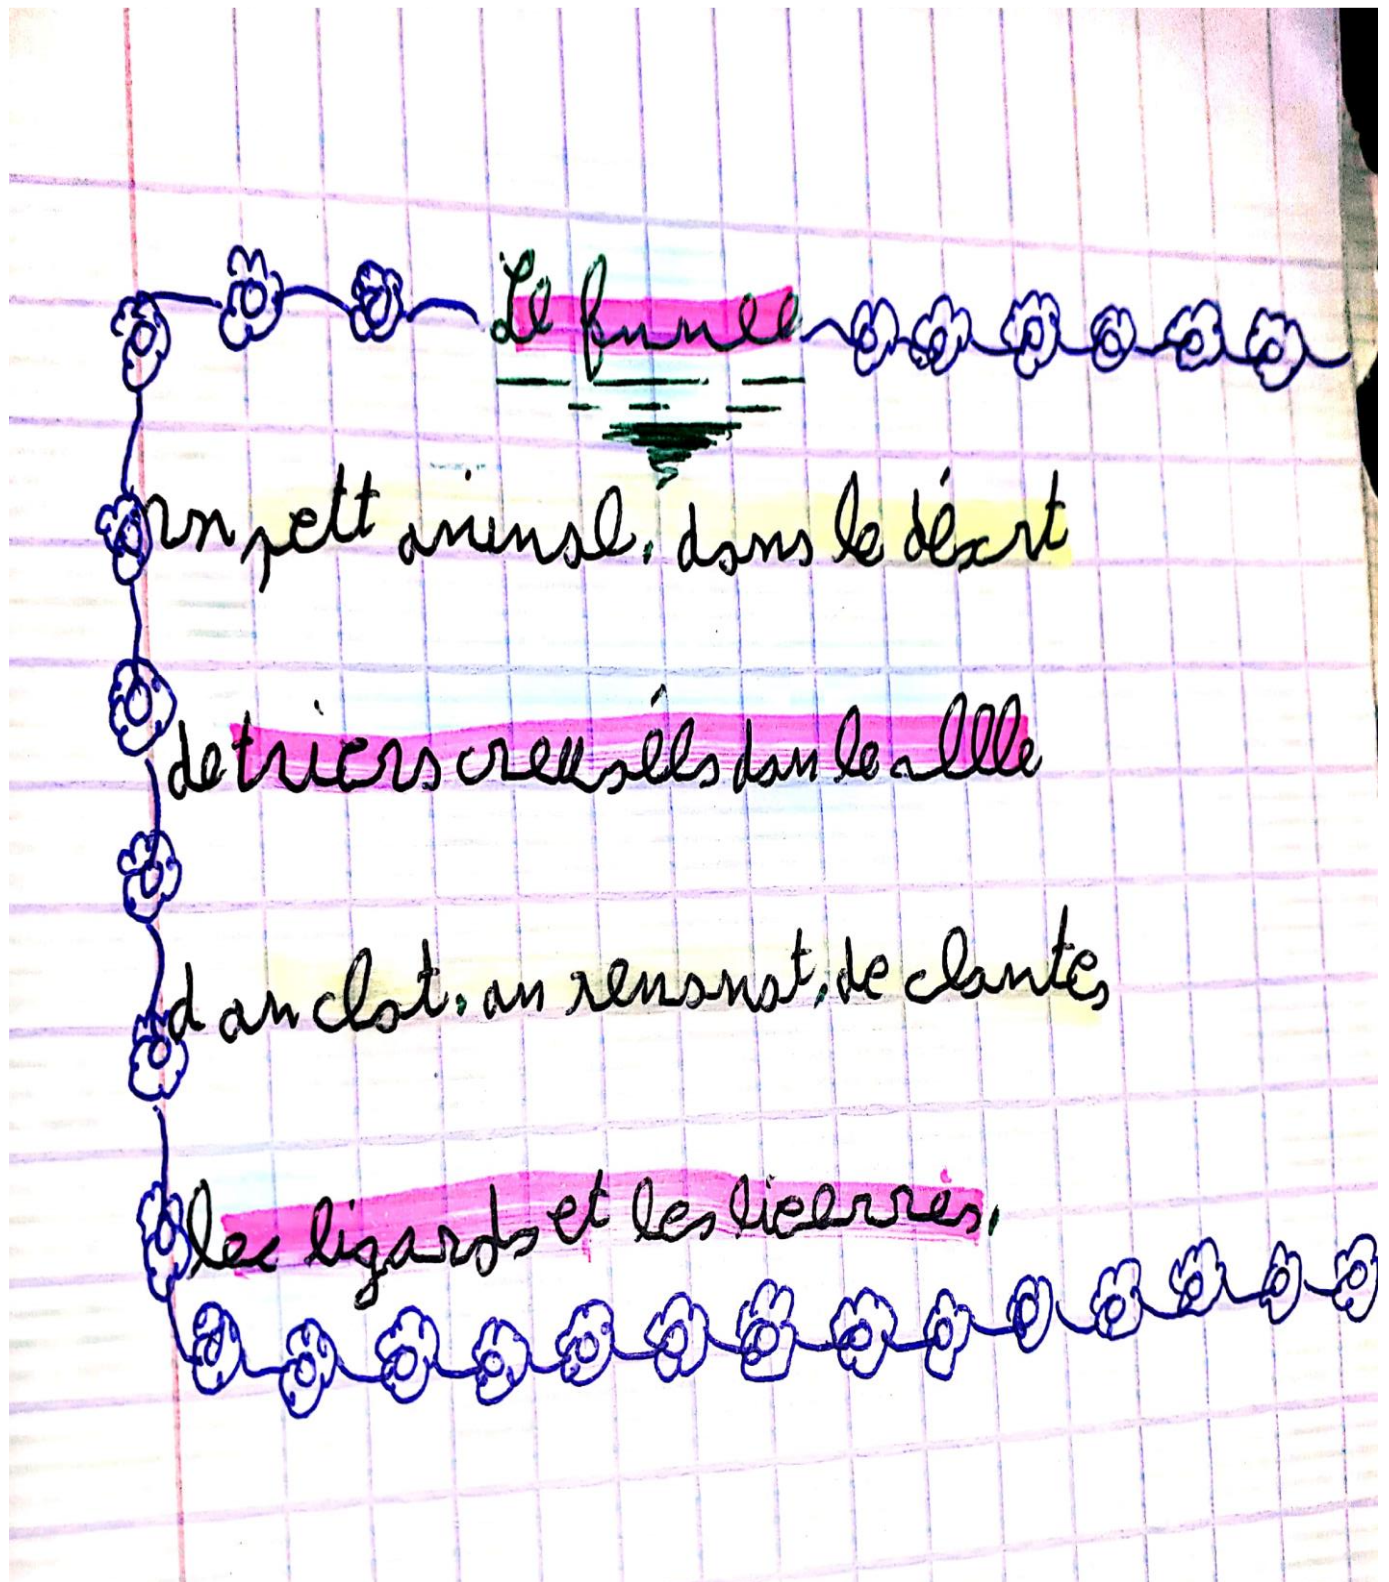 Le funee
un petit animal. dans le désert
de triers creuséls dan le slle
dan clat. an renanat. de clantes
lec lizards et les licerres.